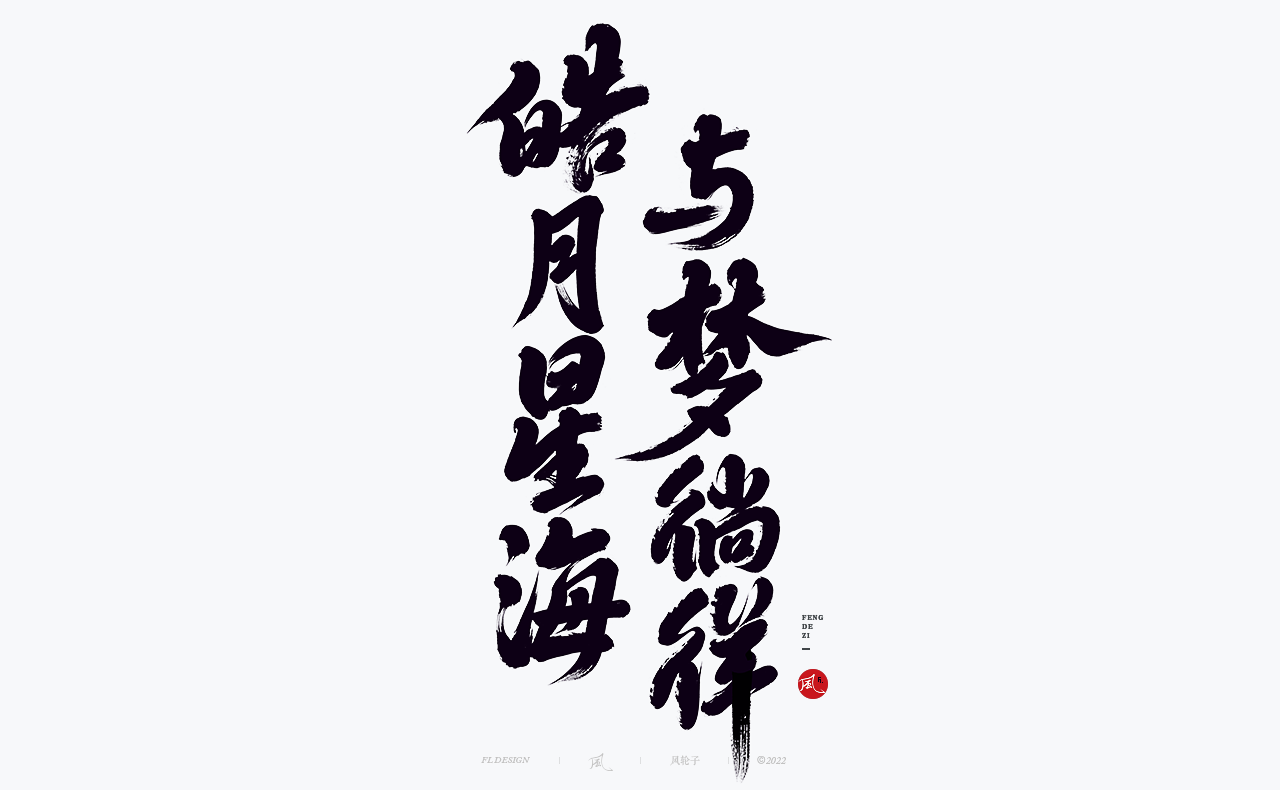 皓月星海
与梦徜徉
FENG
DE
ZI
風
FL.DESIGN
風
风轮子
©2022